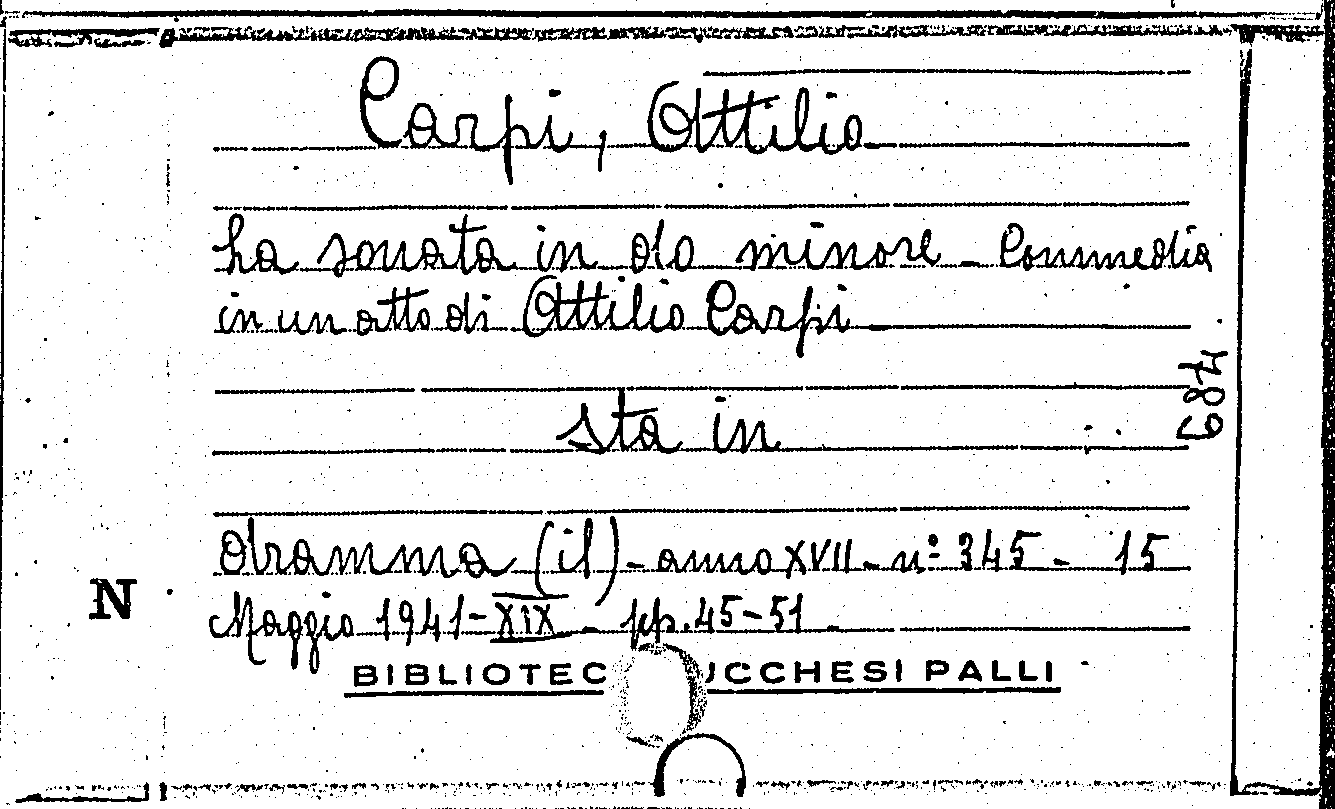 Carpi, Attilio
La sonata in do minore - Commedia
in un atto di Attilio Carpi
sta in
dramma (il) - anno XVII - n° 345 - 15
Maggio 1941 - XIX - pp. 45-51 -
N
BIBLIOTEC UCCHESI PALLI